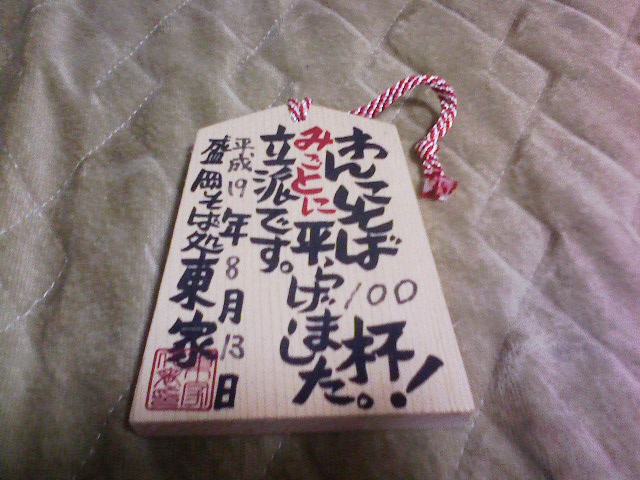 わんこそば100杯!
みごとに平らげました。
立派です。
平成19年8月13日
盛岡そば処東家